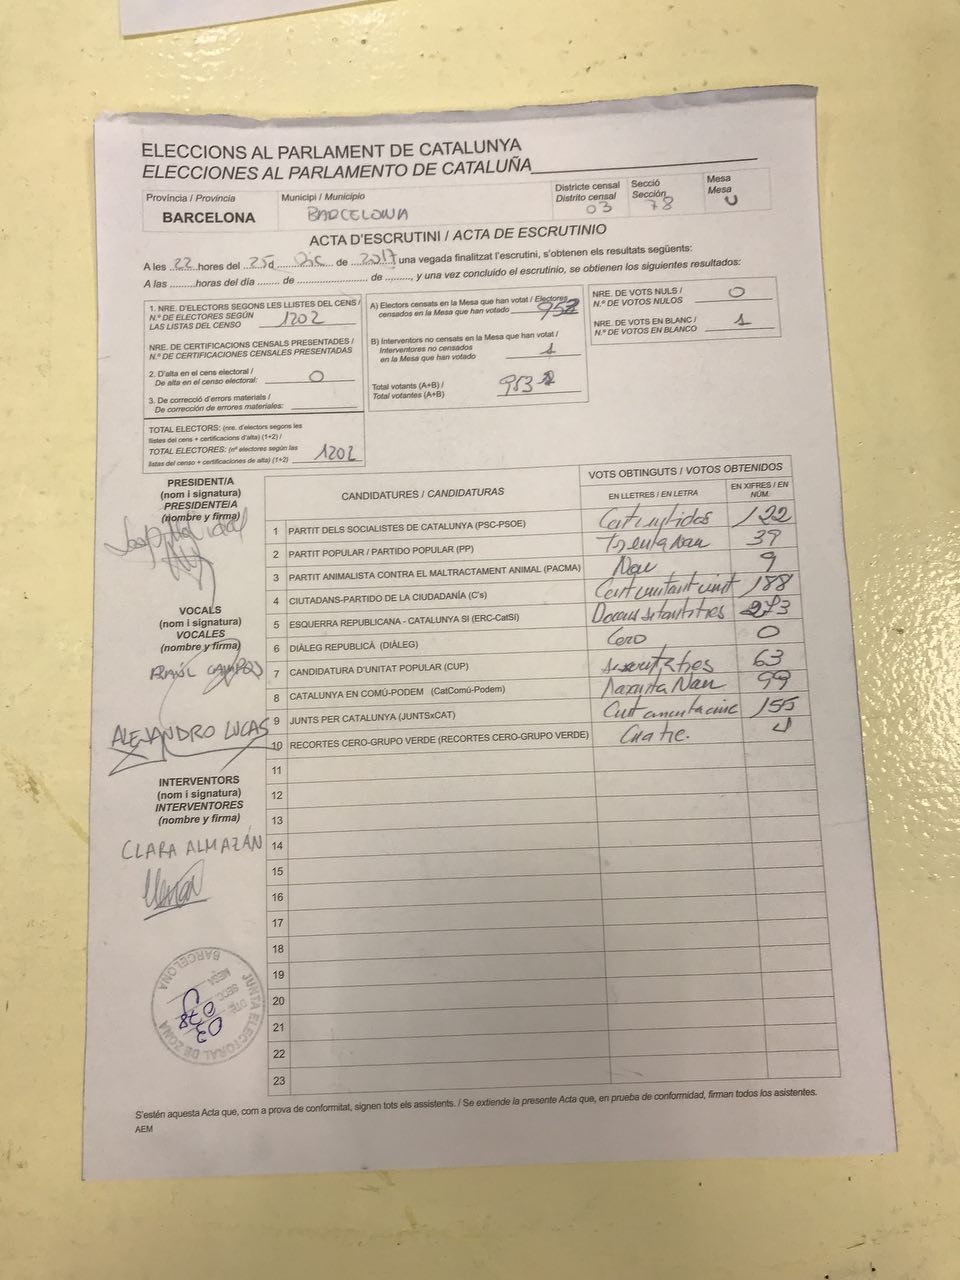 ELECCIONS AL PARLAMENT DE CATALUNYA
ELECCIONES AL PARLAMENTO DE CATALUÑA
Província / Provincia
BARCELONA
Municipi / Municipio
BARCELONA
Districte censal
Distrito censal
03
Secció
Sección
78
Mesa
Mesa
U
ACTA D'ESCRUTINI / ACTA DE ESCRUTINIO
A les 22 hores del de 2017 una vegada finalitzat l'escrutini, s'obtenen els resultats següents:
A las ......... horas del día ........ de ...................... de ........., y una vez concluido el escrutinio, se obtienen los siguientes resultados:
1. NRE. D'ELECTORS SEGONS LES LLISTES DEL CENS /
N.º DE ELECTORES SEGÚN
LAS LISTAS DEL CENSO 1202
NRE. DE CERTIFICACIONS CENSALS PRESENTADES /
N.º DE CERTIFICACIONES CENSALES PRESENTADAS
2. D'alta en el cens electoral /
De alta en el censo electoral: 0
3. De correcció d'errors materials /
De corrección de errores materiales:
TOTAL ELECTORS: (nre. d'electors segons les
llistes del cens + certificacions d'alta) (1+2) /
TOTAL ELECTORES: (nº electores según las
listas del censo + certificaciones de alta) (1+2) 1202
A) Electors censats en la Mesa que han votat / Electores
censados en la Mesa que han votado 952
B) Interventors no censats en la Mesa que han votat /
Interventores no censados
en la Mesa que han votado 1
Total votants (A+B) /
Total votantes (A+B) 953
NRE. DE VOTS NULS /
N.º DE VOTOS NULOS 0
NRE. DE VOTS EN BLANC /
N.º DE VOTOS EN BLANCO 1
PRESIDENT/A
(nom i signatura)
PRESIDENTE/A
(nombre y firma)
VOCALS
(nom i signatura)
VOCALES
(nombre y firma)
RAÚL CAMPOS
ALEJANDRO LUCAS
INTERVENTORS
(nom i signatura)
INTERVENTORES
(nombre y firma)
CLARA ALMAZÁN
JUNTA ELECTORAL DE ZONA
BARCELONA
DTE. 03
SECC. 078
MESA U
CANDIDATURES / CANDIDATURAS
VOTS OBTINGUTS / VOTOS OBTENIDOS
EN LLETRES / EN LETRA
EN XIFRES / EN NÚM.
1 PARTIT DELS SOCIALISTES DE CATALUNYA (PSC-PSOE) 122
2 PARTIT POPULAR / PARTIDO POPULAR (PP) Trenta Nau 39
3 PARTIT ANIMALISTA CONTRA EL MALTRACTAMENT ANIMAL (PACMA) Nou 9
4 CIUTADANS-PARTIDO DE LA CIUDADANÍA (C's) 188
5 ESQUERRA REPUBLICANA - CATALUNYA SI (ERC-CatSI) 273
6 DIÀLEG REPUBLICÀ (DIÀLEG) Cero 0
7 CANDIDATURA D'UNITAT POPULAR (CUP) 63
8 CATALUNYA EN COMÚ-PODEM (CatComú-Podem) 99
9 JUNTS PER CATALUNYA (JUNTSxCAT) 155
10 RECORTES CERO-GRUPO VERDE (RECORTES CERO-GRUPO VERDE) Cuatre. 4
11
12
13
14
15
16
17
18
19
20
21
22
23
S'estén aquesta Acta que, com a prova de conformitat, signen tots els assistents. / Se extiende la presente Acta que, en prueba de conformidad, firman todos los asistentes.
AEM